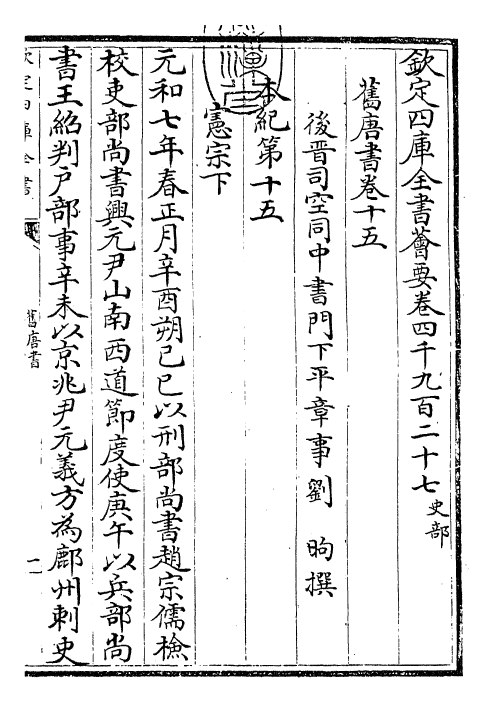 欽定四庫全書薈要卷四千九百二十七 史部
舊唐書卷十五
後晋司空同中書門下平章事劉 昫撰
本紀第十五
憲宗下
元和七年春正月辛酉朔己巳以刑部尚書趙宗儒檢
校吏部尚書興元尹山南西道節度使庚午以兵部尚
書王紹判户部事辛未以京兆尹元義方為鄜州刺史
欽定四庫全書
舊唐書
一